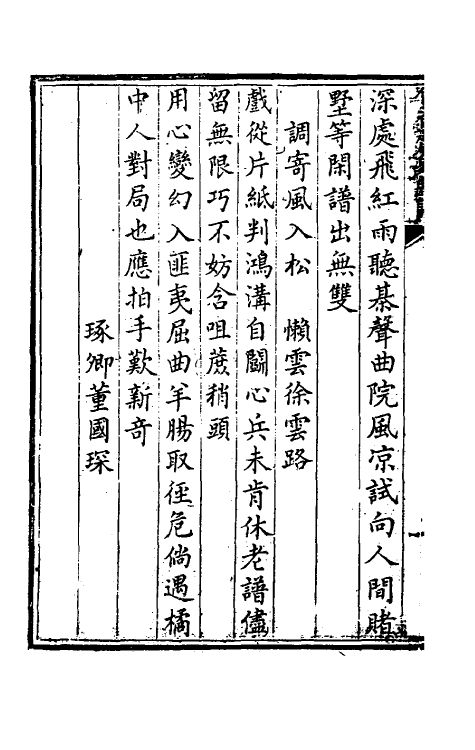 深處飛紅雨聽棊聲曲院風凉試向人間賭
墅等閑譜出無雙
調寄風入松　懶雲徐雲路
戲從片紙判鴻溝自鬭心兵未肯休老譜儘
留無限巧不妨含咀蔗稍頭
用心變幻入匪夷屈曲羊腸取徑危倘遇橘
中人對局也應拍手歎新奇
琢卿董國琛